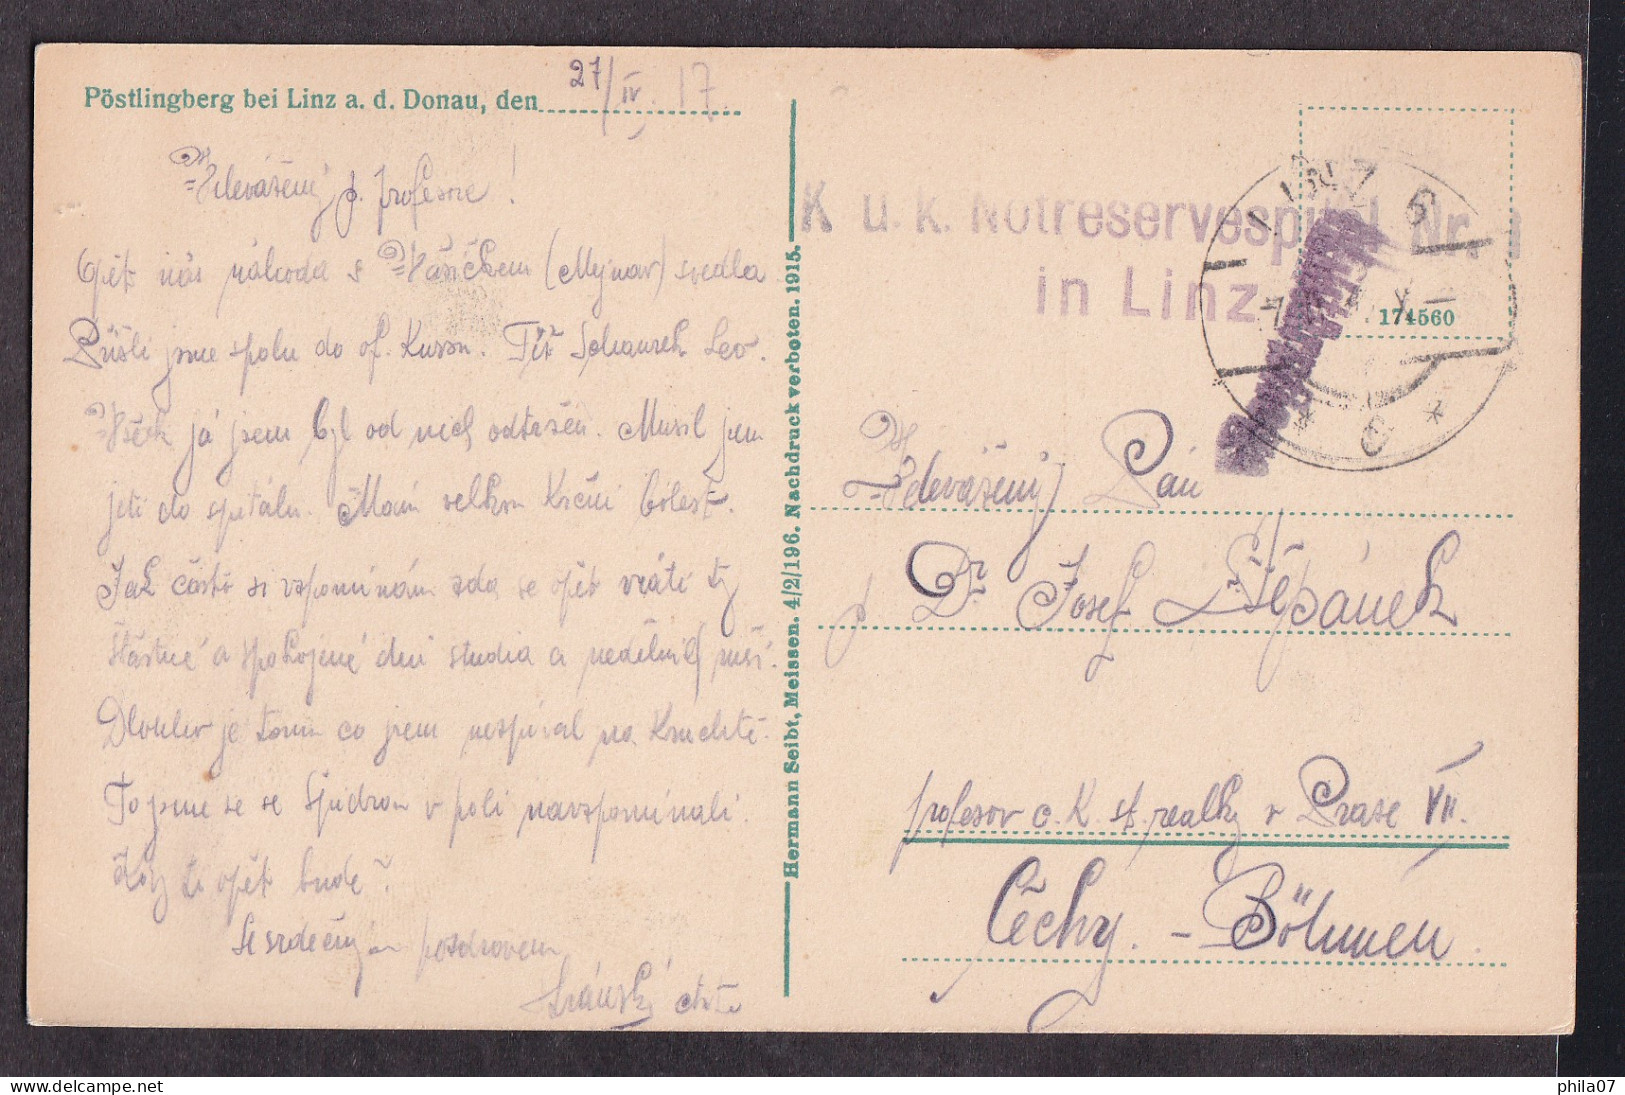 Pöstlingberg bei Linz a. d. Donau, den 27/IV. 17.
Velevážený p. profesore!
Opět nás náhoda s Vašíčkem (Mejnar) svedla
Přišli jsme spolu do of. Kursu. Též Schaurek Leo.
Však já jsem byl od nich odtržen. Musil jsem
jeti do spitálu. Mám velkou krční bolest.
Jak často si vzpomínám zda se opět vrátí ty
šťastné a spokojené dni studia a nedělní mší.
Dlouho je tomu co jsem nespíval na Kruchtě.
To jsme se se v poli navzpomínali.
Kdy to opět bude?
Se srdečným pozdravem
Hermann Seibt, Meissen. 4/2/196. Nachdruck verboten. 1915.
K. u. k. Notreservespital Nr. 1
in Linz
LINZ
174560
* C *
Velevážený Pán
p. Dr Josef Štěpánek
profesor c. K. st. realky v Praze VII.
Čechy. - Böhmen.
phila07